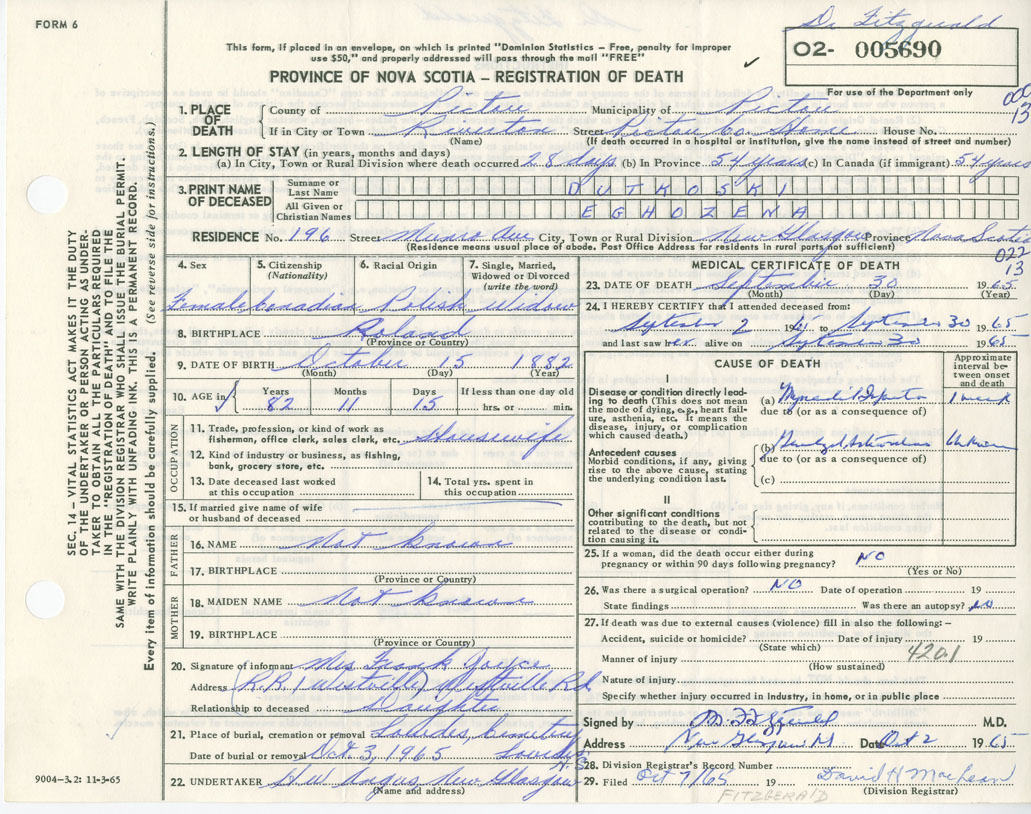 FORM 6
Dr Fitzgerald
O2- 005690
This form, if placed in an envelope, on which is printed "Dominion Statistics – Free, penalty for improper
use $50," and properly addressed will pass through the mail "FREE"
For use of the Department only
PROVINCE OF NOVA SCOTIA – REGISTRATION OF DEATH
1. PLACE OF DEATH
County of Pictou Municipality of Pictou
If in City or Town Riverton Street Pictou Co. Home House No.
(Name) (If death occurred in a hospital or institution, give the name instead of street and number)
2. LENGTH OF STAY (in years, months and days)
(a) In City, Town or Rural Division where death occurred 28 days (b) In Province 54 years (c) In Canada (if immigrant) 54 years
3. PRINT NAME OF DECEASED
Surname or Last Name DUTKOSKI
All Given or Christian Names EGHOZENA
RESIDENCE No. 196 Street Munro Ave City, Town or Rural Division New Glasgow Province Nova Scotia
(Residence means usual place of abode. Post Office Address for residents in rural parts not sufficient)
022
13
4. Sex Female
5. Citizenship (Nationality) Canadian
6. Racial Origin Polish
7. Single, Married, Widowed or Divorced (write the word) Widow
8. BIRTHPLACE Poland
(Province or Country)
9. DATE OF BIRTH October 15 1882
(Month) (Day) (Year)
10. AGE in Years 82 Months 11 Days 15 If less than one day old hrs. or min.
OCCUPATION
11. Trade, profession, or kind of work as fisherman, office clerk, sales clerk, etc. Housewife
12. Kind of industry or business, as fishing, bank, grocery store, etc.
13. Date deceased last worked at this occupation
14. Total yrs. spent in this occupation
15. If married give name of wife or husband of deceased
FATHER
16. NAME Not known
17. BIRTHPLACE
(Province or Country)
MOTHER
18. MAIDEN NAME Not known
19. BIRTHPLACE
(Province or Country)
20. Signature of informant Mrs Frank Joyce
Address R.R.1 Westville, Westville Rd
Relationship to deceased Daughter
21. Place of burial, cremation or removal Lourdes Cemetery
Date of burial or removal Oct. 3, 1965 Lourdes N.S
22. UNDERTAKER H.W. Angus, New Glasgow
(Name and address)
MEDICAL CERTIFICATE OF DEATH
23. DATE OF DEATH September 30 1965
(Month) (Day) (Year)
24. I HEREBY CERTIFY that I attended deceased from:
September 2 19 to September 30 1965
and last saw her alive on September 30 1965
CAUSE OF DEATH
Approximate interval between onset and death
I
Disease or condition directly leading to death (This does not mean the mode of dying, e.g., heart failure, asthenia, etc. It means the disease, injury, or complication which caused death.)
(a) 1 week
due to (or as a consequence of)
Antecedent causes
Morbid conditions, if any, giving rise to the above cause, stating the underlying condition last.
(b) Unknown
due to (or as a consequence of)
(c)
II
Other significant conditions
contributing to the death, but not related to the disease or condition causing it.
25. If a woman, did the death occur either during pregnancy or within 90 days following pregnancy? NO
(Yes or No)
26. Was there a surgical operation? NO Date of operation 19
State findings Was there an autopsy? NO
27. If death was due to external causes (violence) fill in also the following:–
Accident, suicide or homicide? Date of injury 19
(State which)
Manner of injury 420.1
(How sustained)
Nature of injury
Specify whether injury occurred in industry, in home, or in public place
Signed by M. Fitzgerald M.D.
Address New Glasgow NS Date Oct 2 1965
28. Division Registrar's Record Number
29. Filed Oct 7/65 19 David H MacLean
(Division Registrar)
FITZGERALD
SEC. 14 – VITAL STATISTICS ACT MAKES IT THE DUTY
OF THE UNDERTAKER OR PERSON ACTING AS UNDER-
TAKER TO OBTAIN ALL THE PARTICULARS REQUIRED
IN THE "REGISTRATION OF DEATH" AND TO FILE THE
SAME WITH THE DIVISION REGISTRAR WHO SHALL ISSUE THE BURIAL PERMIT.
WRITE PLAINLY WITH UNFADING INK. THIS IS A PERMANENT RECORD.
Every item of information should be carefully supplied. (See reverse side for instructions.)
9004-3.2: 11-3-65